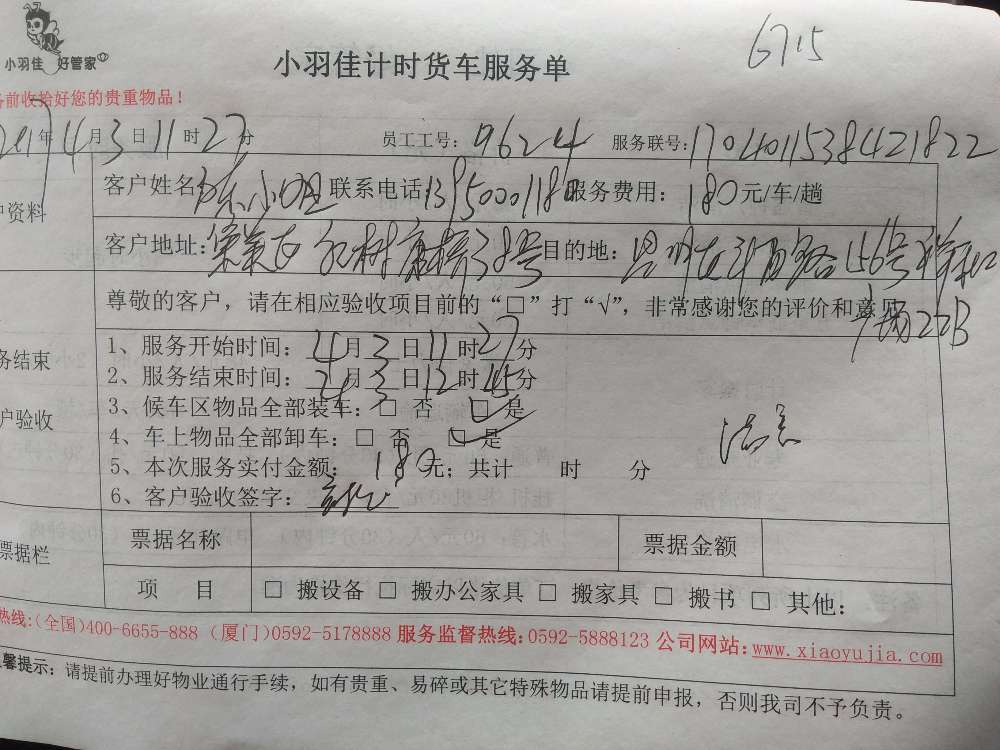 小羽佳 好管家
小羽佳计时货车服务单
6715
前收拾好您的贵重物品！
2017年4月3日11时27分 员工工号：09624 服务联号：170401153842182​2
客户姓名 陈小姐 联系电话 13950001180 服务费用：180元/车/趟
户资料
客户地址： 38号 目的地： 156号
22B
尊敬的客户，请在相应验收项目前的“□”打“√”，非常感谢您的评价和意见
1、服务开始时间：4月3日11时27分
务结束
2、服务结束时间：4月3日12时45分
3、候车区物品全部装车：□ 否 □ 是
户验收
4、车上物品全部卸车：□ 否 □ 是
5、本次服务实付金额：180元；共计 时 分
6、客户验收签字：
票据栏
票据名称 票据金额
项 目 □ 搬设备 □ 搬办公家具 □ 搬家具 □ 搬书 □ 其他：
热线：（全国）400-6655-888（厦门）0592-5178888 服务监督热线：0592-5888123 公司网站：www.xiaoyujia.com
馨提示：请提前办理好物业通行手续，如有贵重、易碎或其它特殊物品请提前申报，否则我司不予负责。